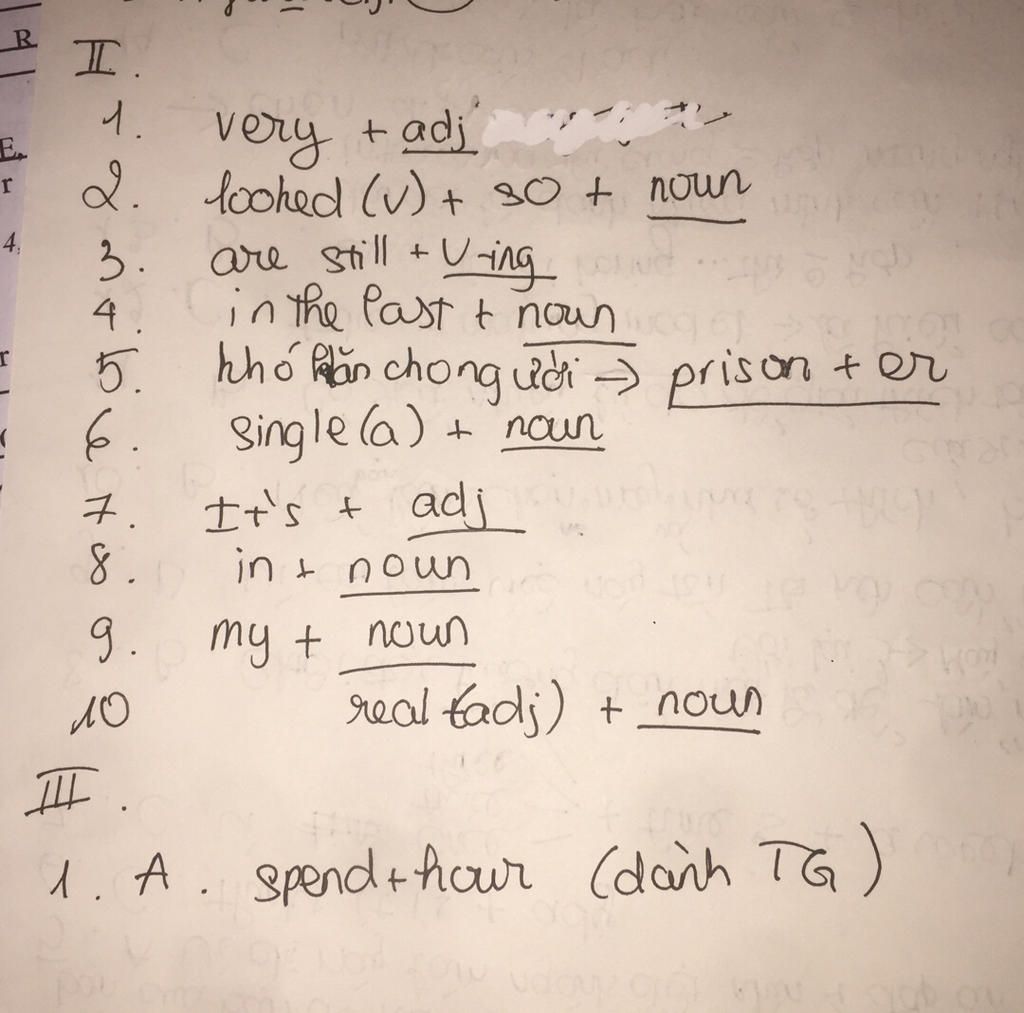 R
II.
1. very + adj
2. looked (v) + so + noun
3. are still + V-ing
4. in the last + noun
5. khó khăn cho người → prison + er
6. single (a) + noun
7. It's + adj
8. in + noun
9. my + noun
10 real (adj) + noun
III.
1. A. spend + hour (dành TG)
E.
r
4,
r